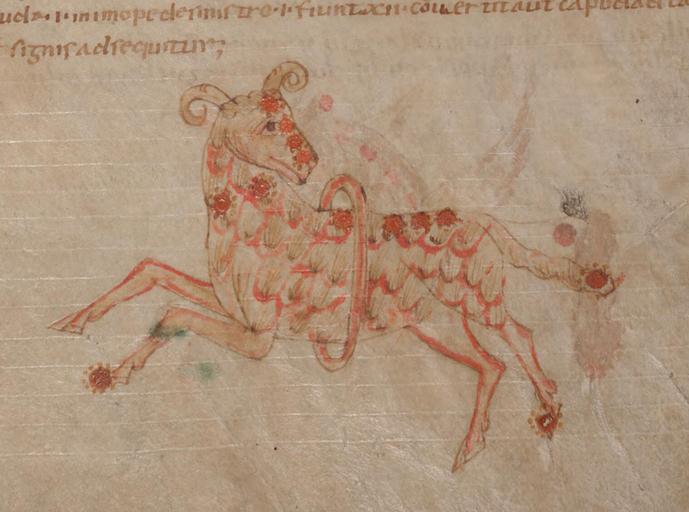 uda · i · in imo pede sinistro · i · fiunt xii · convertit aut caput ad ta
signis adsequitur;